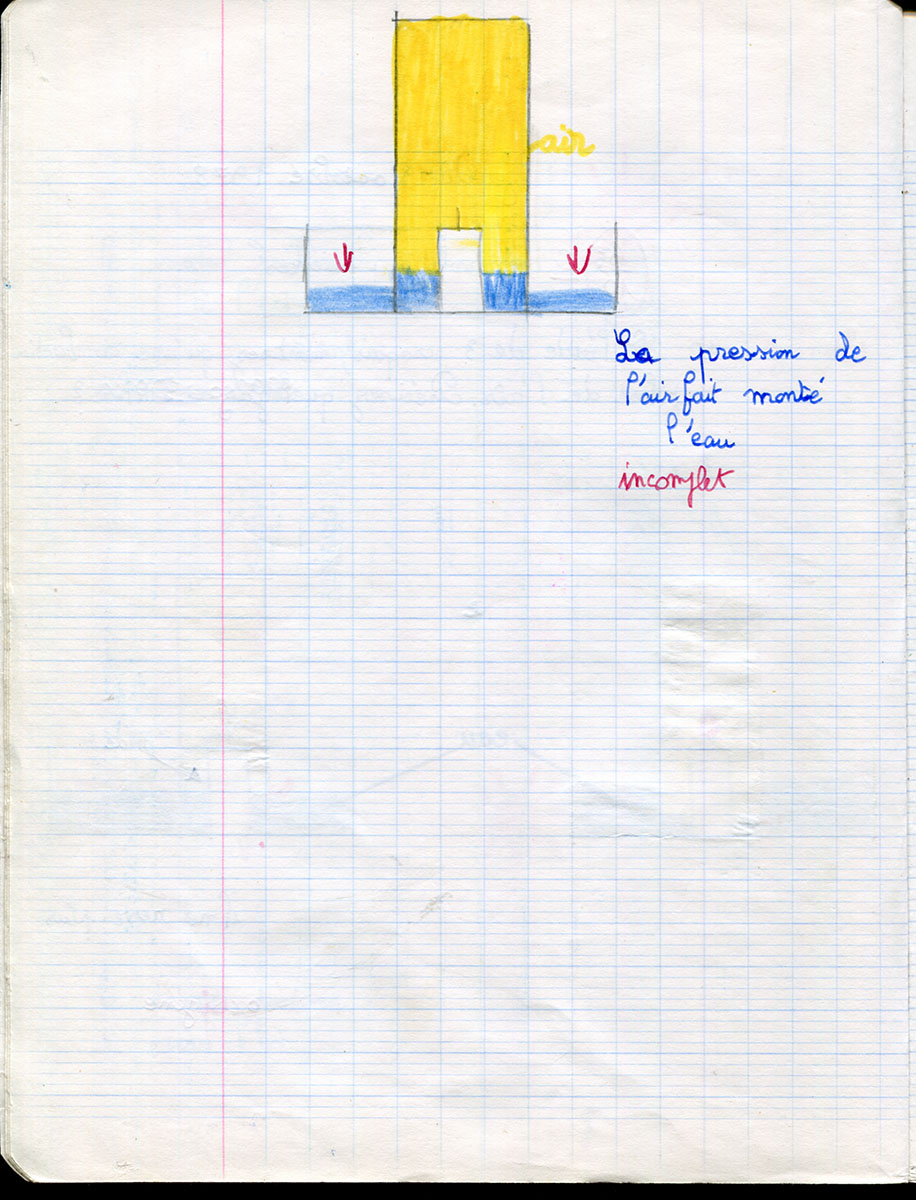 air
La pression de
l'air fait monté
l'eau
incomplet